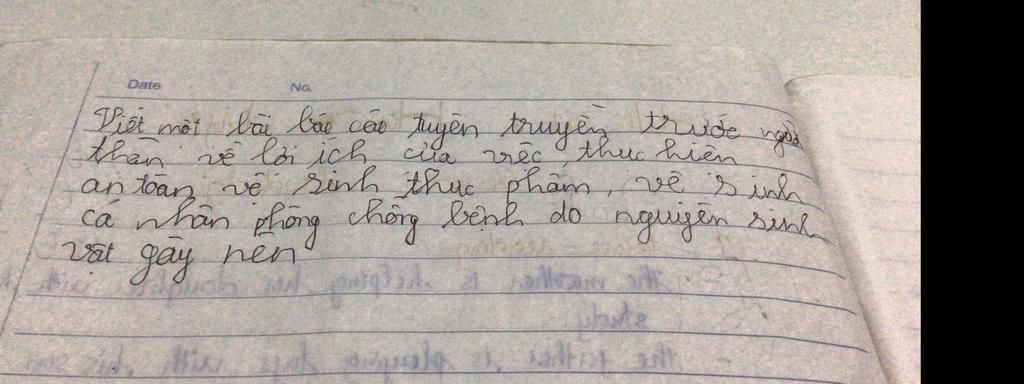 Date No.
Viết một bài báo cáo tuyên truyền trước người
thân về lợi ích của việc thực hiện
an toàn vệ sinh thực phẩm, vệ sinh
cá nhân phòng chống bệnh do nguyên sinh
vật gây nên